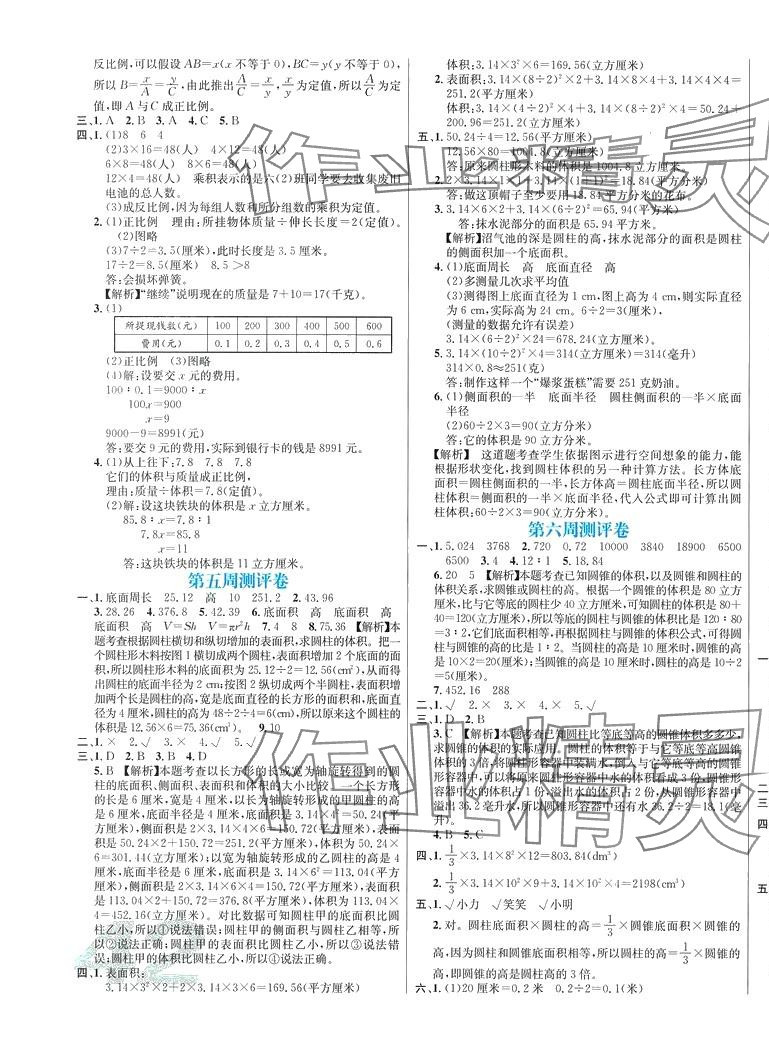 反比例,可以假设 AB=x(x 不等于 0),BC=y(y 不等于 0),
所以 B=x/A=y/C,由此推出 A/C=x/y,x/y为定值,所以A/C为定
值,即 A 与 C 成正比例。
三、1. A 2. B 3. A 4. C 5. B
四、1. (1)8 6 4
(2)3×16=48(人) 4×12=48(人)
6×8=48(人) 8×6=48(人)
12×4=48(人) 乘积表示的是六(2)班同学要去收集废旧
电池的总人数。
(3)成反比例,因为每组人数和所分组数的乘积为定值。
2. (1)正比例 理由:所挂物体质量÷伸长长度=2(定值)。
(2)图略
(3)7÷2=3.5(厘米),此时长度是 3.5 厘米。
17÷2=8.5(厘米) 8.5>8
答:会损坏弹簧。
【解析】“继续”说明现在的质量是 7+10=17(千克)。
3. (1)
所提现钱数(元) 100 200 300 400 500 600
费用(元) 0.1 0.2 0.3 0.4 0.5 0.6
(2)正比例 (3)图略
(4)解:设要交 x 元的费用。
100∶0.1=9000∶x
100x=900
x=9
9000-9=8991(元)
答:要交 9 元的费用,实际到银行卡的钱是 8991 元。
4. (1)从上往下:7.8 7.8 7.8
它们的体积与质量成正比例。
理由:质量÷体积=7.8(定值)。
(2)解:设这块铁块的体积是 x 立方厘米。
85.8∶x=7.8∶1
7.8x=85.8
x=11
答:这块铁块的体积是 11 立方厘米。
第五周测评卷
一、1. 底面周长 25.12 高 10 251.2 2. 43.96
3. 28.26 4. 376.8 5. 42.39 6. 底面积 高 底面积 高
底面积 高 V=Sh V=πr²h 7. 4 8 8. 75.36 【解析】本
题考查根据圆柱横切和纵切增加的表面积,求圆柱的体积。把一
个圆柱形木料按图 1 横切成两个圆柱,表面积增加 2 个底面的面
积,所以圆柱形木料的底面积为 25.12÷2=12.56(cm²),从而得
出圆柱的底面半径为 2 cm;按图 2 纵切成两个半圆柱,表面积增
加两个长是圆柱的高,宽是底面直径的长方形的面积和,底面直
径为 4 厘米,圆柱的高为 48÷2÷4=6(cm),所以原来这个圆柱
的体积是 12.56×6=75.36(cm³)。 9. 10
二、1. × 2. √ 3. × 4. √ 5. √
三、1. D 2. B 3. B 4. D
5. B 【解析】本题考查以长方形的长或宽为轴旋转得到的圆
柱的底面积、侧面积、表面积和体积的大小比较。一个长方形
的长是 6 厘米,宽是 4 厘米,以长为轴旋转形成的甲圆柱的高
是 6 厘米,底面半径是 4 厘米,底面积是 3.14×4²=50.24(平
方厘米),侧面积是 2×3.14×4×6=150.72(平方厘米),表面
积是 50.24×2+150.72=251.2(平方厘米),体积为 50.24×
6=301.44(立方厘米);以宽为轴旋转形成的乙圆柱的高是 4
厘米,底面半径是 6 厘米,底面积是 3.14×6²=113.04(平方
厘米),侧面积是 2×3.14×6×4=150.72(平方厘米),表面积
是 113.04×2+150.72=376.8(平方厘米),体积为 113.04×
4=452.16(立方厘米)。对比数据可知圆柱甲的底面积比圆
柱乙小,所以①说法错误;圆柱甲的侧面积与圆柱乙相等,所
以②说法正确;圆柱甲的表面积比圆柱乙小,所以③说法错
误;圆柱甲的体积比圆柱乙小,所以④说法正确。
四、1. 表面积:
3.14×3²×2+2×3.14×3×6=169.56(平方厘米)
体积:3.14×3²×6=169.56(立方厘米)
2. 表面积:3.14×(8÷2)²×2+3.14×8×4+3.14×4×4=
251.2(平方厘米)
体积:3.14×(4÷2)²×4+3.14×(8÷2)²×4=50.24+
200.96=251.2(立方厘米)
五、1. 50.24÷4=12.56(平方厘米)
12.56×80=1004.8(立方厘米)
答:原来圆柱形木料的体积是 1004.8 立方厘米。
2. 2×3.14×1×2+3.14×(1+1)²=18.84(平方分米)
答:做这顶帽子至少要用 18.84 平方分米的花布。
3. 3.14×6×2+3.14×(6÷2)²=65.94(平方米)
答:抹水泥部分的面积是 65.94 平方米。
【解析】沼气池的深是圆柱的高,抹水泥部分的面积是圆柱
的侧面积加一个底面积。
4. (1)底面周长 高 底面直径 高
(2)多测量几次求平均值
(3)测得图上底面直径为 1 cm,图上高为 4 cm,则实际直径
为 6 cm,实际高为 24 cm。 6÷2=3(厘米),
(测量的数据允许有误差)
3.14×3²×24=678.24(立方厘米)。
5. 3.14×(10÷2)²×4=314(立方厘米)=314(毫升)
314×0.8≈251(克)
答:制作这样一个“爆浆蛋糕”需要 251 克奶油。
6. (1)侧面积的一半 底面半径 圆柱侧面积的一半×底面
半径
(2)60÷2×3=90(立方分米)
答:它的体积是 90 立方分米。
【解析】 这道题考查学生依据图示进行空间想象的能力,能
根据形状变化,找到圆柱体积的另一种计算方法。长方体底
面积=圆柱侧面积的一半,长方体高=圆柱底面半径,所以圆
柱体积=侧面积的一半×底面半径,代入公式即可计算出圆
柱体积:60÷2×3=90(立方分米)。
第六周测评卷
一、1. 5.024 3768 2. 720 0.72 10000 3840 8500
6500 3. 4 4. 12∶1 5. 18.84
6. 20 5 【解析】本题考查已知圆锥的体积,以及圆锥和圆柱的
体积关系,求圆锥或圆柱的高。已知一个圆锥的体积是 80 立方
厘米,比与它等底的圆柱少 40 立方厘米,可知圆柱的体积是 80+
40=120(立方厘米),所以等底的圆柱与圆锥的体积比是 120∶80
=3∶2,它们底面积相等,再根据圆柱与圆锥的体积公式,可得圆
柱与圆锥的高的比是 1∶2。当圆柱的高是 10 厘米时,圆锥的
高是 10×2=20(厘米);当圆锥的高是 10 厘米时,圆柱的高是 10÷2
=5(厘米)。
7. 452.16 288
二、1. √ 2. × 3. × 4. √ 5. ×
三、1. D 2. B
3. C 【解析】本题考查已知圆柱比等底等高的圆锥体积多多少,
求圆锥的体积的实际应用。圆柱的体积等于与它等底等高圆锥
体积的 3 倍,将圆柱形容器中装满水,倒入与它等底等高的圆锥
形容器中,可以将原来圆柱形容器中水的体积看成 3 份,圆锥形
容器中水的体积占 1 份,溢出水的体积占 2 份,从圆锥形容器中
溢出 36.2 毫升水,所以圆锥形容器中还有水 36.2÷2=18.1(毫
升)。
4. B 5. C
四、1. 1/3×3.14×8²×12=803.84(dm³)
2. 1/3×3.14×10²×9+3.14×10²×4=2198(cm³)
五、1. √小力 √笑笑 √小明
2. 对。圆柱底面积×圆柱的高=1/3×圆锥底面积×圆锥的
高,因为圆柱和圆锥底面积相等,所以圆柱的高=1/3×圆锥的
高,即圆锥的高是圆柱高的 3 倍。
六、1. (1)20 厘米=0.2 米 0.2÷2=0.1(米)
一
二
三
四
五
作业精灵
作业精灵